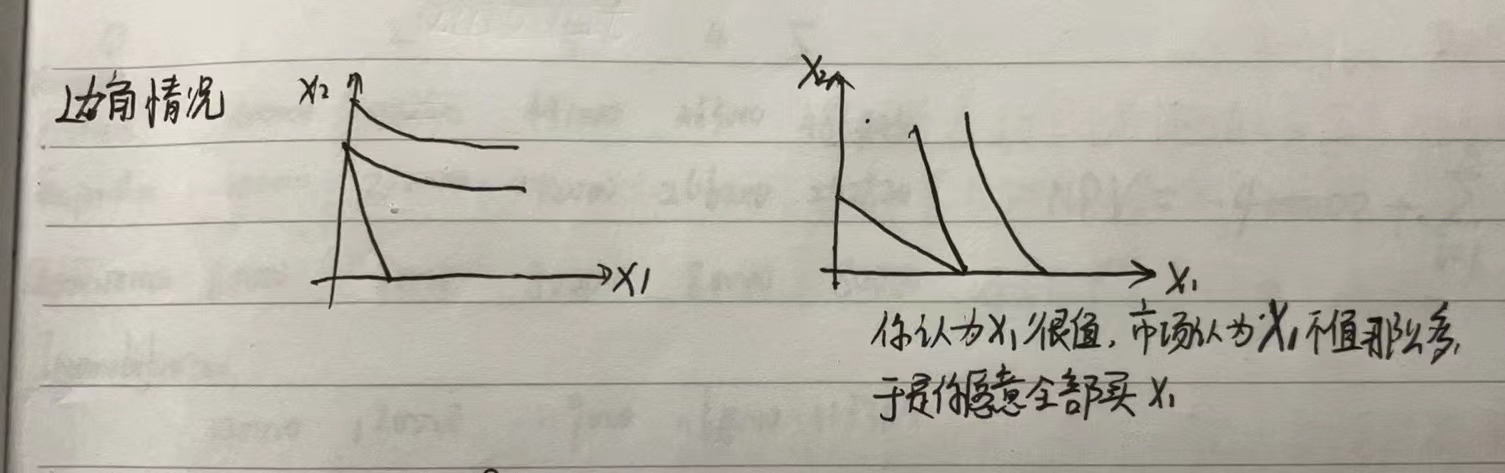 边角情况
X2
X1
X2
X1
你认为X1很值,市场认为X1不值那么多,
于是你愿意全部买X1